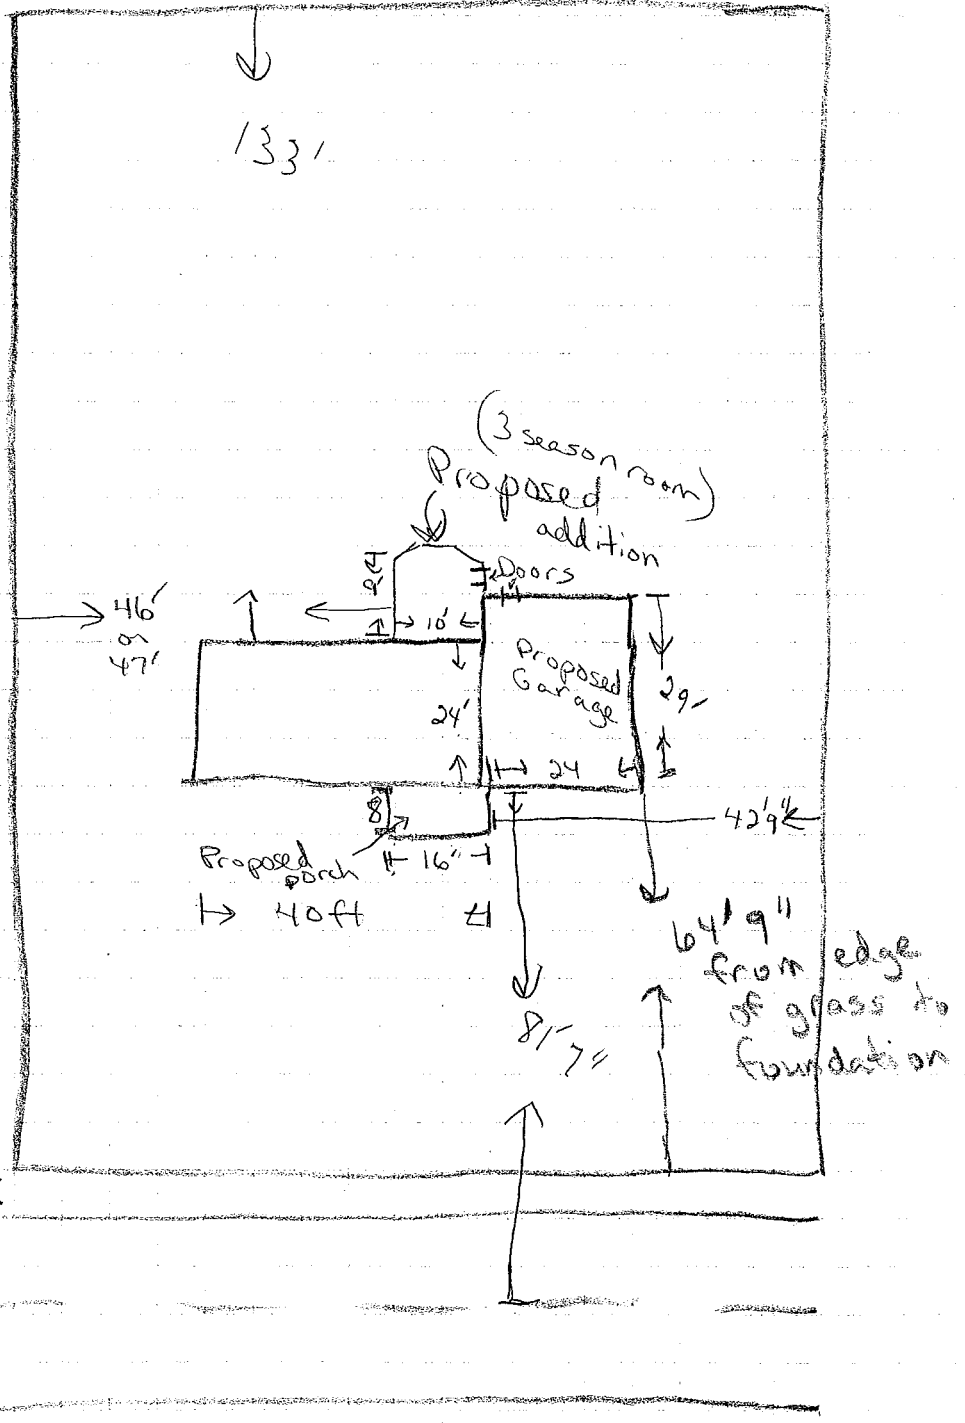 133'
(3 season room)
Proposed
addition
Doors
46'
or
47'
10'
Proposed
Garage
29'
24'
24
8
42'9"
Proposed
porch
16"
40ft
64' 9"
from edge
of grass to
foundation
81'7"